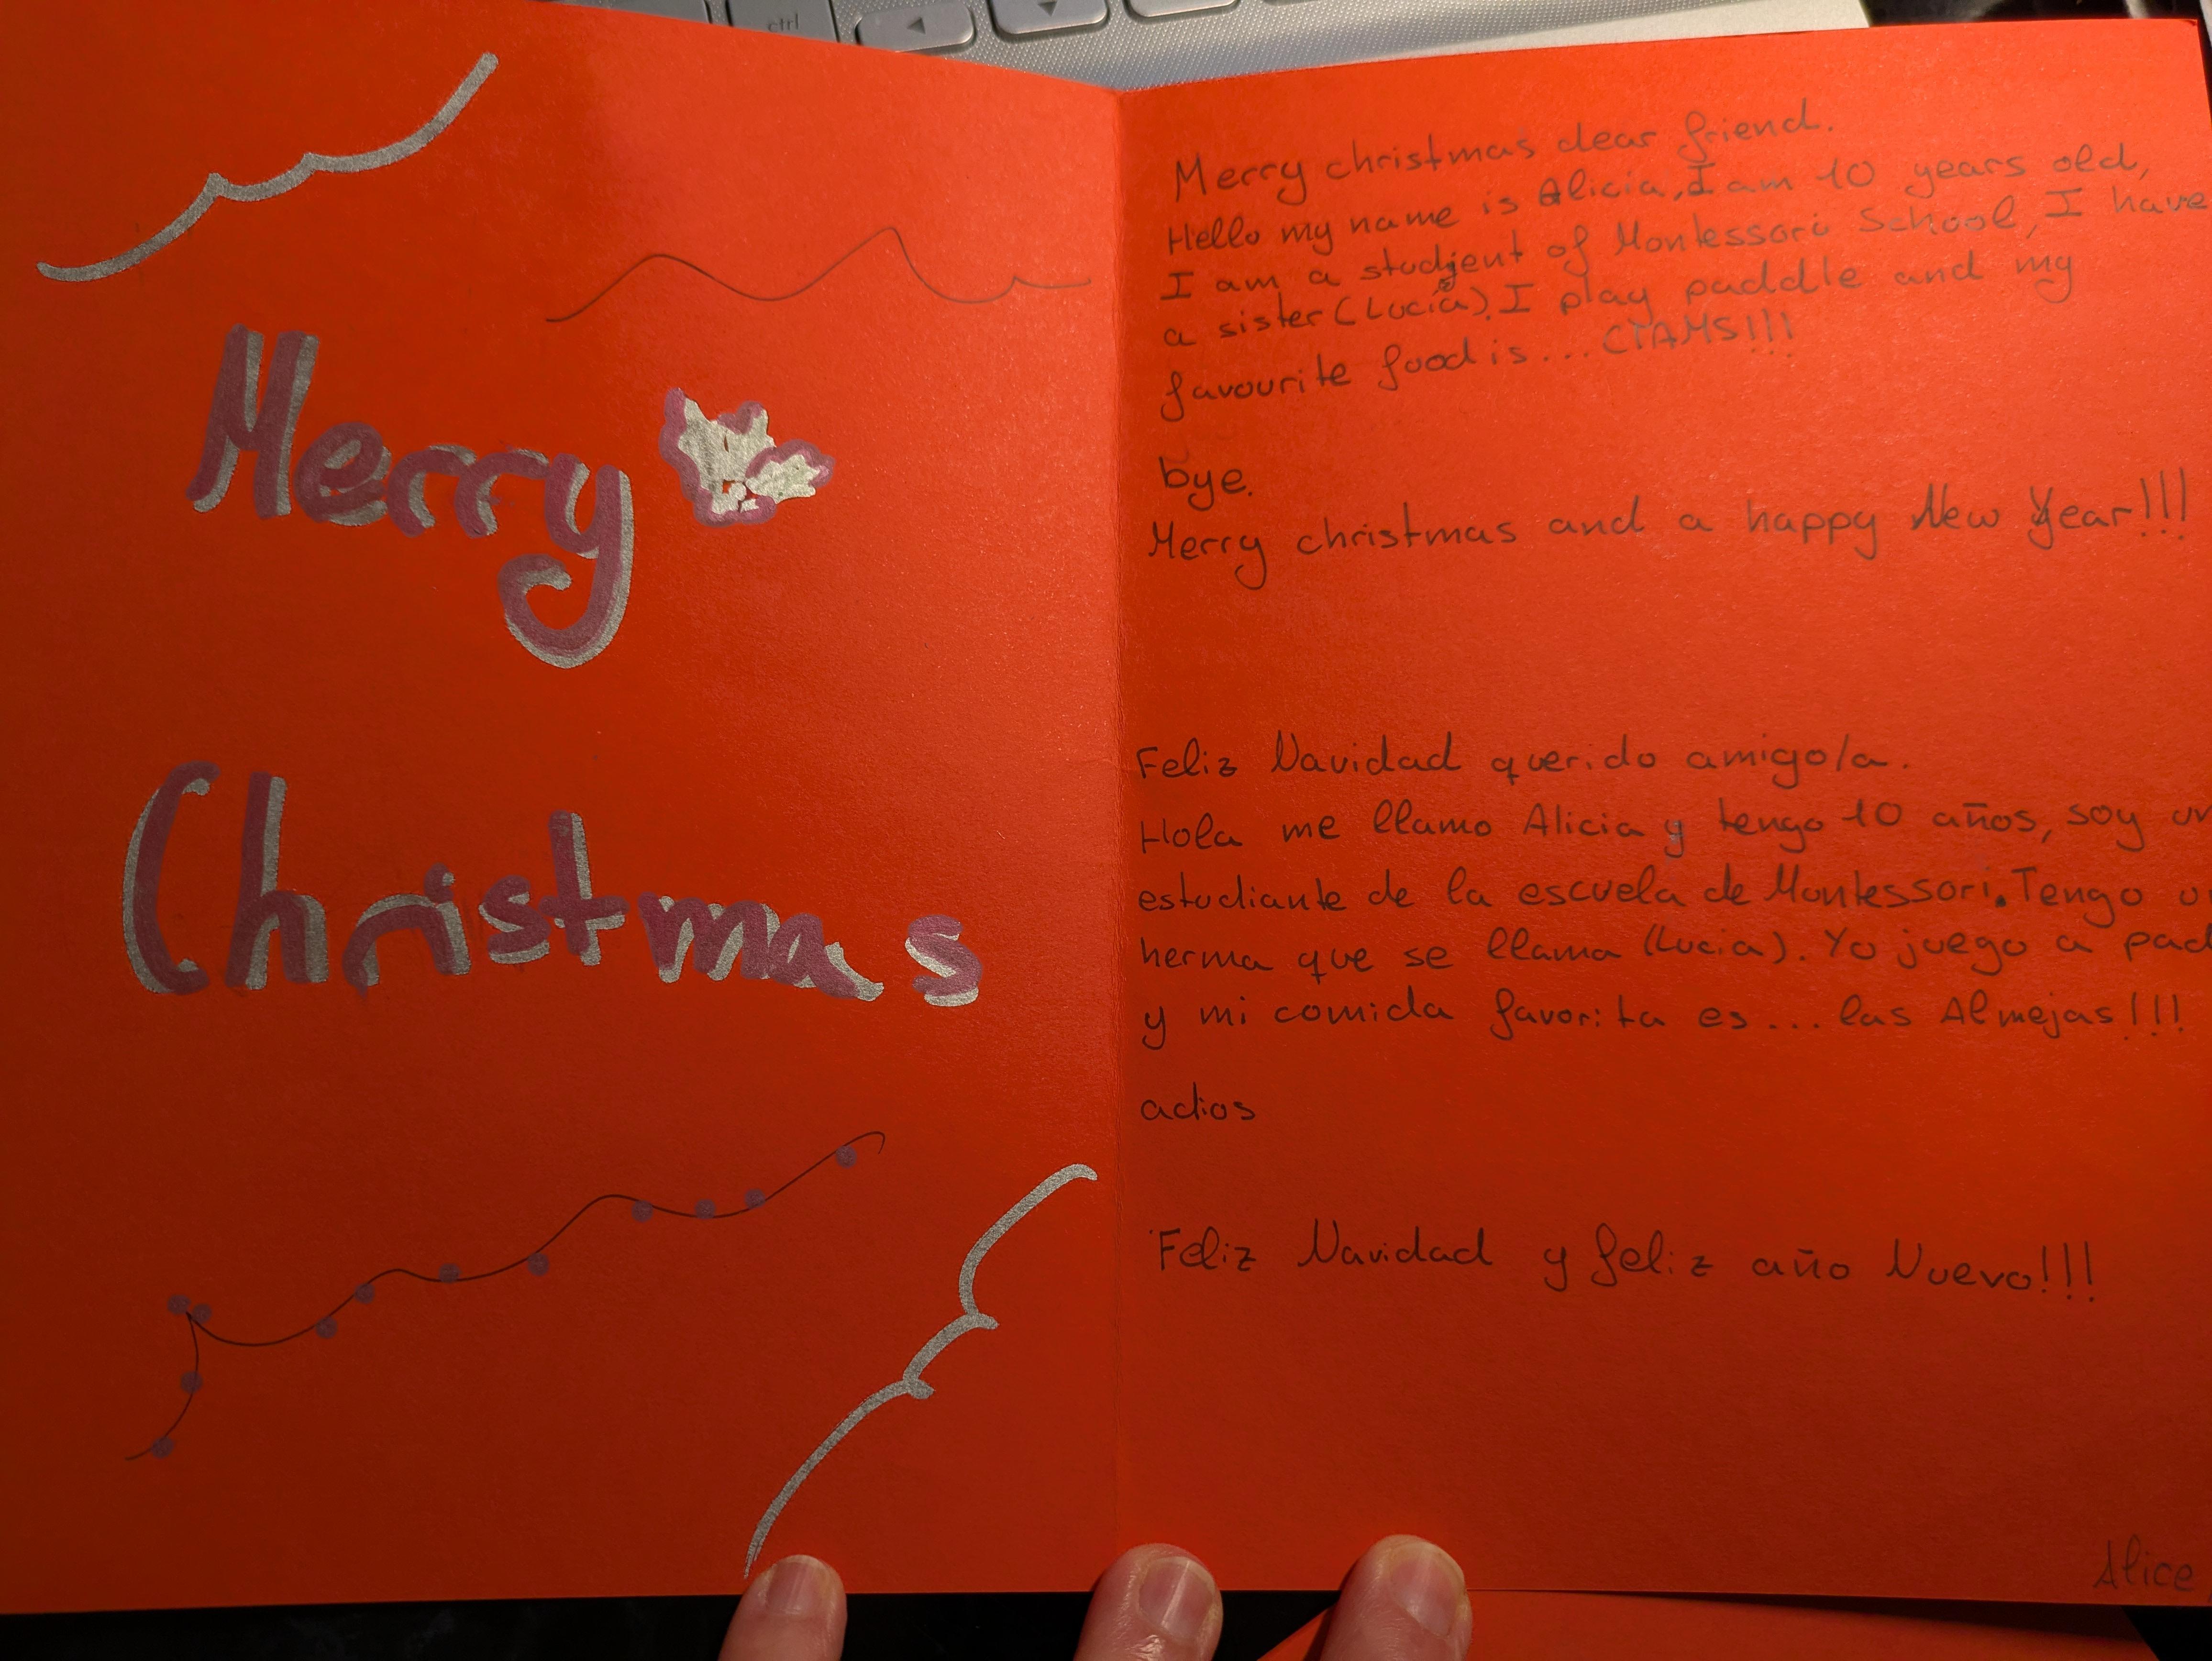 ctrl
Merry
Christmas
Merry christmas dear friend.
Hello my name is Alicia, I am 10 years old,
I am a student of Montessori School, I have
a sister (Lucía). I play paddle and my
favourite food is... CTAMS!!!
bye.
Merry christmas and a happy New Year!!!
Feliz Navidad querido amigo/a.
Hola me llamo Alicia y tengo 10 años, soy
estudiante de la escuela de Montessori. Tengo
herma que se llama (Lucia). Yo juego a
y mi comida favorita es... las Almejas!!!
adios
Feliz Navidad y feliz año Nuevo!!!
Alice